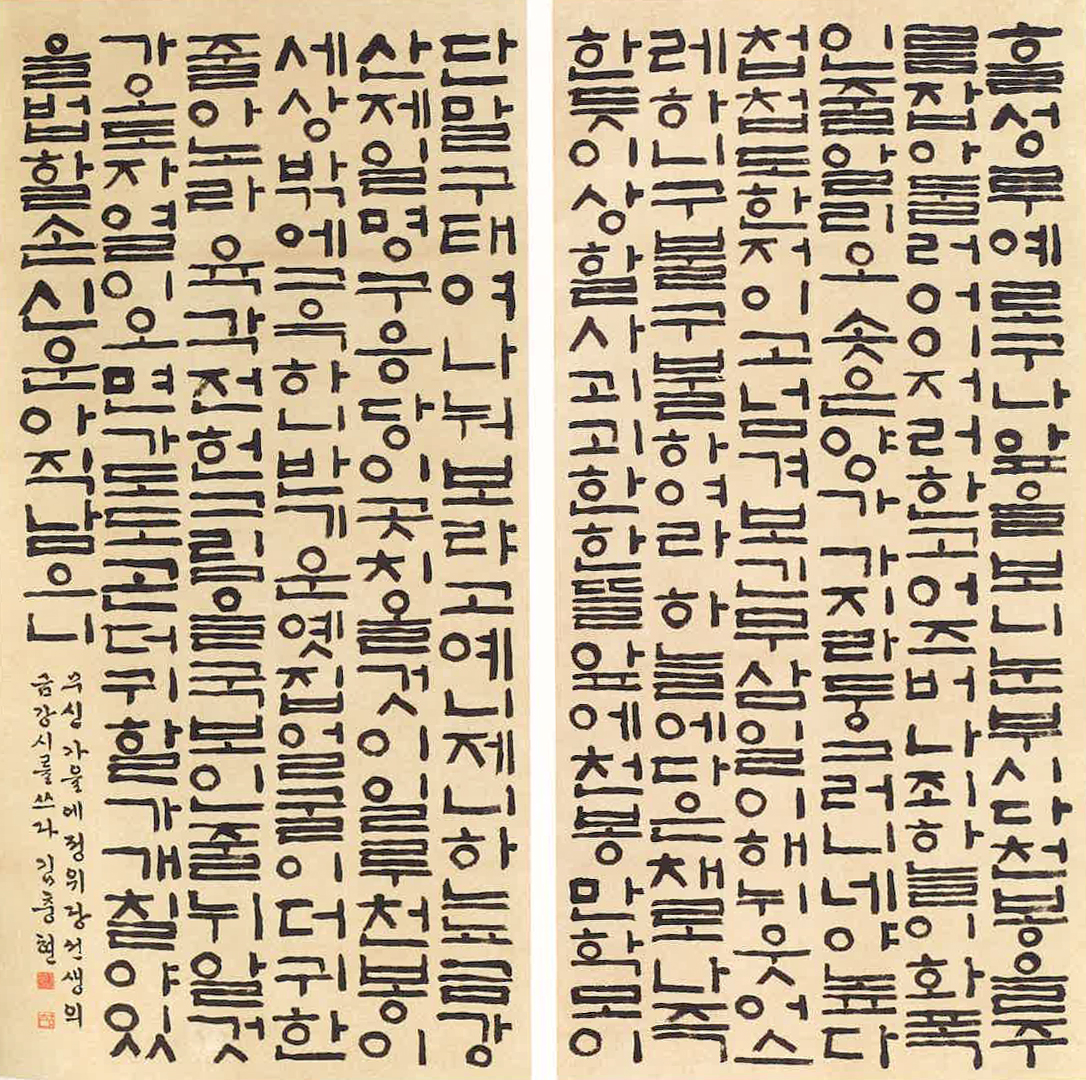 헐성루예로구나앞을보니눈부시다천봉을주
를잡아둘러어이저러한고어즈버나조하늘이화폭
인줄알리오솟은양가가지랄둥그러니네양높다
첩첩도한저이고넘겨보긴무삼일이해뉘웃어스
레하니구불구불하여라하늘에닿은채로나죽
한듯이상할사괴괴한한뜰앞에천봉만학몯이
단말구태여나눠보랴고예니제니하는금강
산제일명구응당이곳치올것이일루천봉이
세상밖에그윽하니반기운옛집얼굴이더귀한
줄아노라육각전헌그림을국보인줄뉘알것
가오도자열이오면가도도곤더귀할가개칠야있
을법할손신운아직남으니
무신가을에정위당선생의
금강시를쓰다김충현